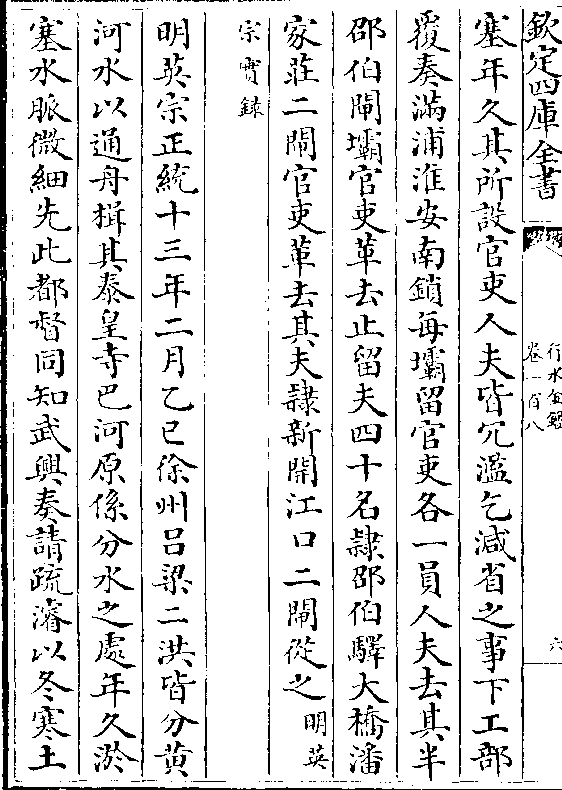 欽定四庫全書
行水金鑑
卷一百八
六
塞年久其所設官吏人夫皆冗濫乞減省之事下工部
覆奏滿浦淮安南鎖每壩留官吏各一員人夫去其半
邵伯閘壩官吏革去止留夫四十名隸邵伯驛大橋潘
家莊二閘官吏革去其夫隸新開江口二閘從之明英
宗實錄
明英宗正統十三年二月乙巳徐州吕梁二洪皆分黄
河水以通舟楫其泰皇寺巴河原係分水之處年久淤
塞水脈微細先此都督同知武興奏請疏濬以冬寒土